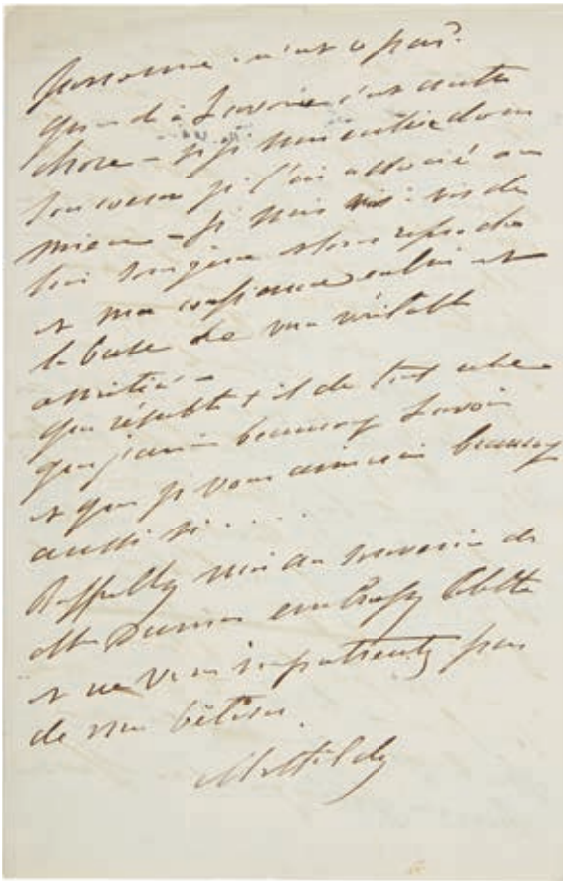 personne. n'est ce pas?
quand à Savoie c'est autre
chose – si je suis entrée dans
son coeur je l'ai associé au
mien – je suis vis à vis de
lui toujours sans reproche
et ma confiance en lui est
la base de ma véritable
amitié –
que résulte t il de tout cela
que j'aime beaucoup Savoie
et que je vous aimerais beaucoup
aussi si . . . . .
Rappellez moi au souvenir de
Mr Dumas embrassez Colette
et ne vous impatientez pas
de mes bêtises.
Mathilde